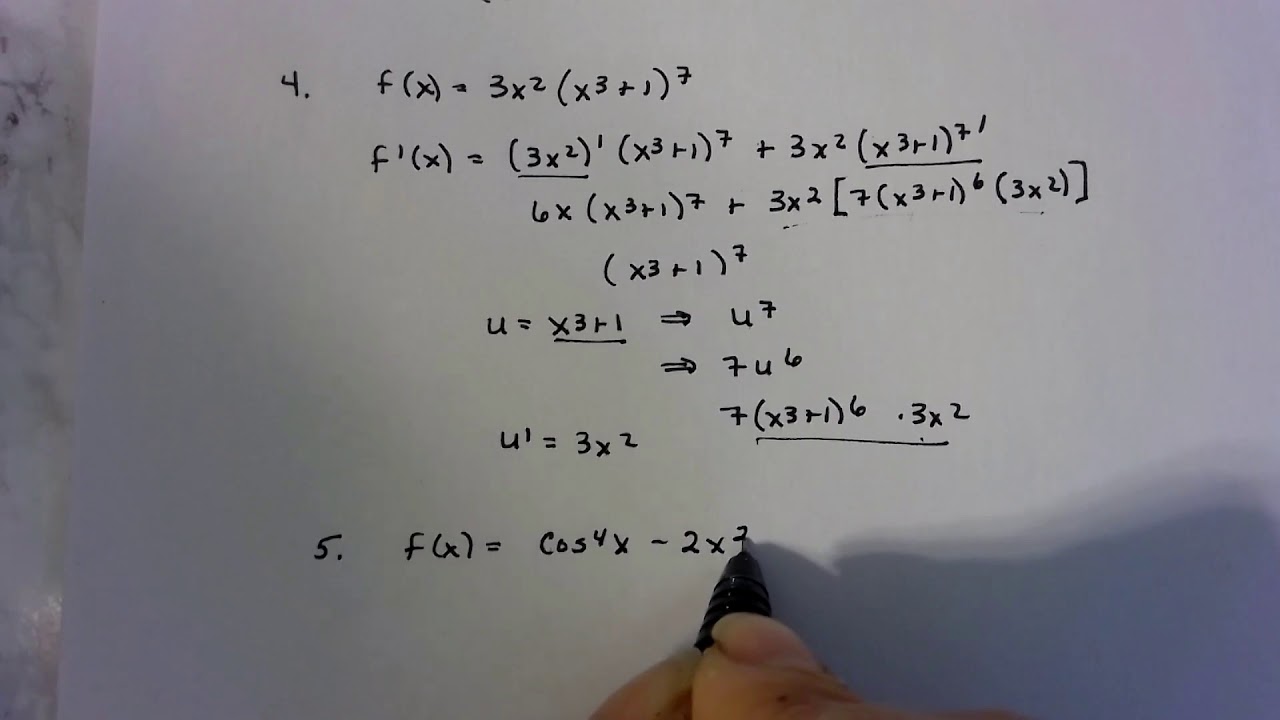 4. f(x) = 3x² (x³+1)⁷
f'(x) = (3x²)' (x³+1)⁷ + 3x² (x³+1)⁷'
6x (x³+1)⁷ + 3x² [7(x³+1)⁶ (3x²)]
(x³+1)⁷
u = x³+1 ⇒ u⁷
⇒ 7u⁶
7(x³+1)⁶ · 3x²
u' = 3x²
5. f(x) = cos⁴x - 2x